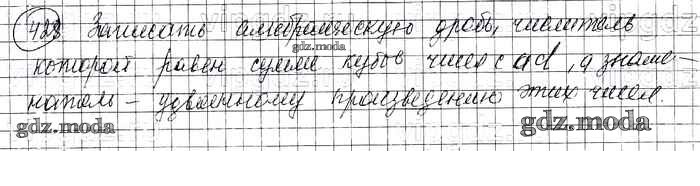 428 Записать алгебраическую дробь, числитель
которой равен сумме кубов чисел c и d, а знаме-
натель – удвоенному произведению этих чисел.
gdz.moda
gdz.moda
gdz.moda